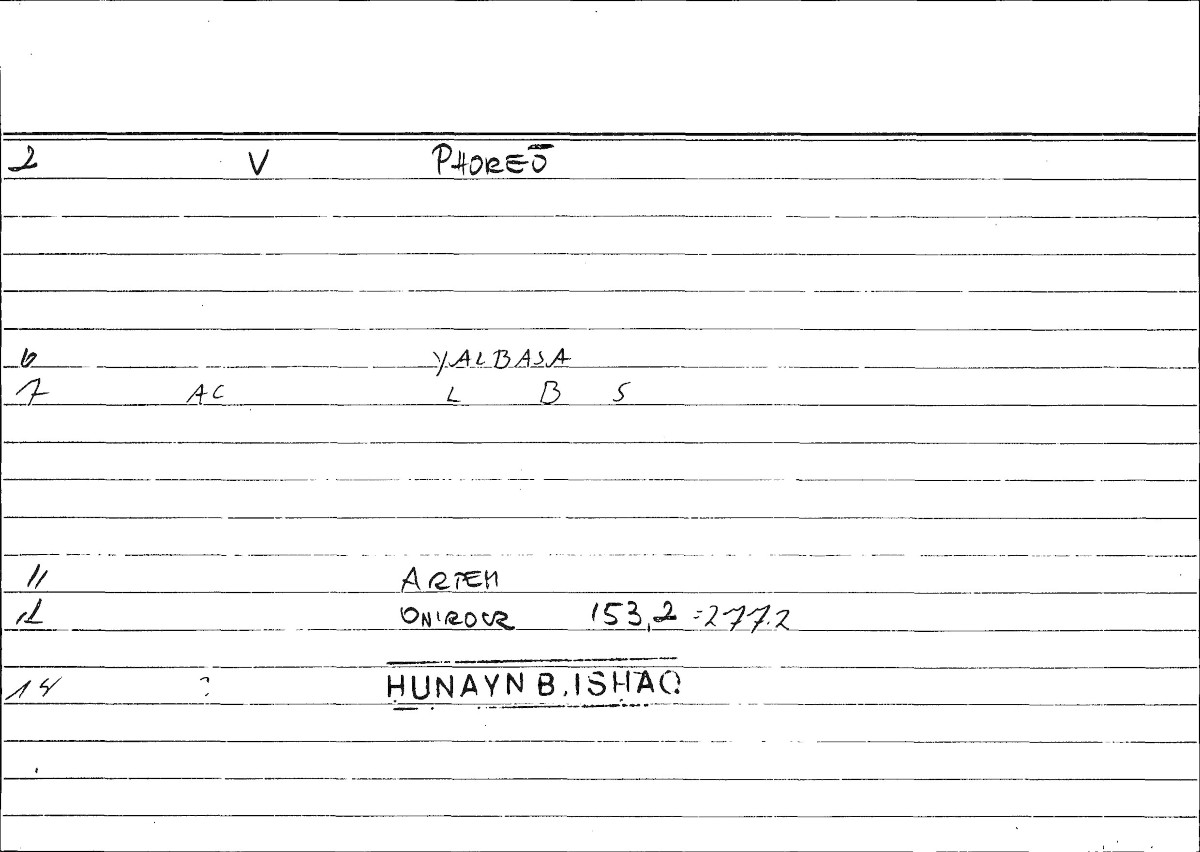 2 V PHOREŌ
6 YALBASA
7 AC L B S
11 ARTEM
12 ONIROCR 153,2 = 277.2
14 ? HUNAYN B. ISHAQ